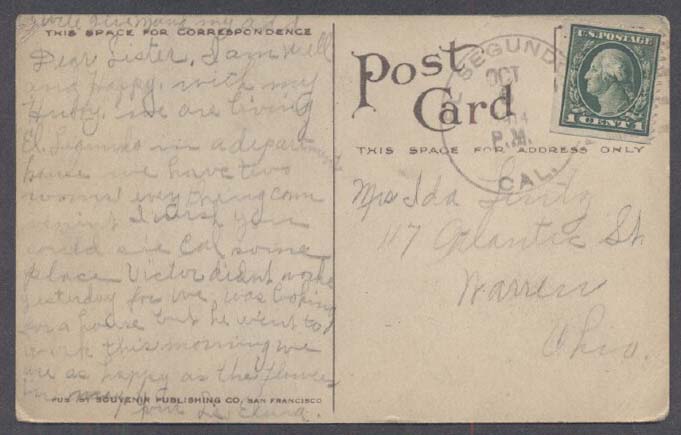 write Give Mame my add
THIS SPACE FOR CORRESPONDENCE
Dear Sister, I am well
and Happy. with my
Hubby. we are living
El Segundo in a depart
house we have two
rooms every thing conv
I wish you
could see Cal some
place Victor didnt work
yesterday for we was looking
for a house but he went to
work this morning we
are as happy as the flowers
in may
from
PUB BY SOUVENIR PUBLISHING CO., SAN FRANCISCO
Post
Card
THIS SPACE FOR ADDRESS ONLY
SEGUNDO
OCT
14
P.M.
CAL.
U.S. POSTAGE
1 CENT 1
Mrs Ida
117 Atlantic St.
Warren
Ohio.